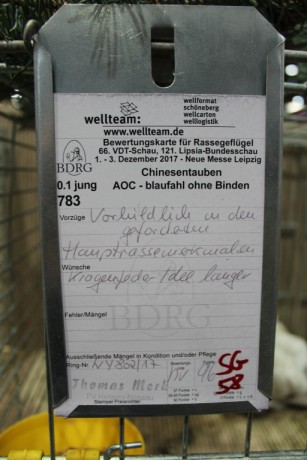 wellteam:
wellformat
schöneberg
wellcarten
welllogistik
www.wellteam.de
BDRG
Bewertungskarte für Rassegeflügel
66. VDT-Schau, 121. Lipsia-Bundesschau
1. - 3. Dezember 2017 - Neue Messe Leipzig
Chinesentauben
0.1 jung AOC - blaufahl ohne Binden
783
Vorzüge Vorbildlich in den
geforderten
Hauptrassemerkmalen
Wünsche
Kragenfeder Idee länger
Fehler/Mängel
BDRG
Ausschließende Mängel in Kondition und/oder Pflege
Ring-Nr.
Thomas
Stempel Preisrichter
SG